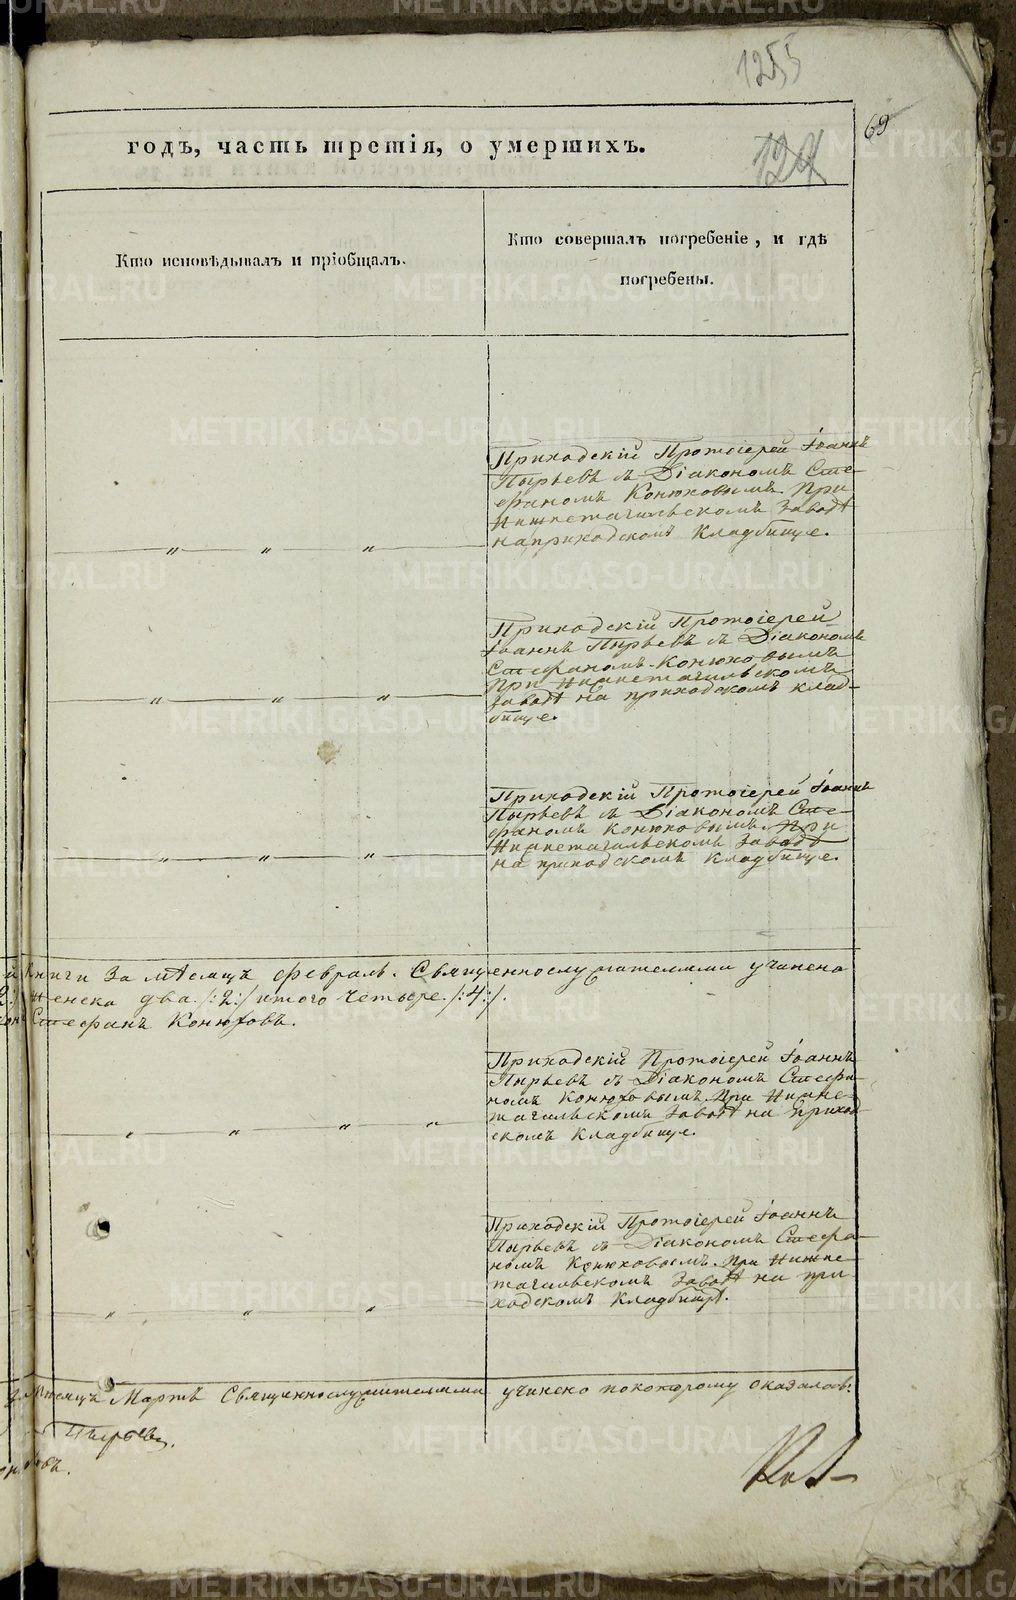 1255
69
годъ, часть третія, о умершихъ.
124
Кто исповѣдывалъ и пріобщалъ.
Кто совершалъ погребеніе, и гдѣ
погребены.
Приходскій Протоіерей Іоаннъ
Пырьевъ съ Діакономъ Сте-
фаномъ Конюховымъ. При
Нижнетагильскомъ Заводѣ
на приходскомъ Кладбище.
„ „ „
Приходскій Протоіерей
Іоаннъ Пырьевъ съ Діакономъ
Стефаномъ Конюховымъ
При Нижнетагильскомъ
Заводѣ на приходскомъ клад-
бище.
„ „ „
Приходскій Протоіерей Іоаннъ
Пырьевъ съ Діакономъ Сте-
фаномъ Конюховымъ. При
Нижнетагильскомъ Заводѣ
на приходскомъ Кладбище.
„ „ „
Книги За мѣсяцъ февраль. Священнослужителями учинено
женска два /:2:/ итого четыре /:4:/.
Стефанъ Конюховъ.
Приходскій Протоіерей Іоаннъ
Пырьевъ съ Діакономъ Стефа-
номъ Конюховымъ. При Нижне-
тагильскомъ Заводѣ на Приход-
скомъ Кладбище.
„ „ „ „
Приходскій Протоіерей Іоаннъ
Пырьевъ съ Діакономъ Стефа-
номъ Конюховымъ. При Нижне-
тагильскомъ Заводѣ на при-
ходскомъ Кладбищѣ.
„ „ „
мѣсяцъ Мартъ Священнослужителями учинено по которому оказалось:
Пырьевъ.
METRIKI.GASO-URAL.RU